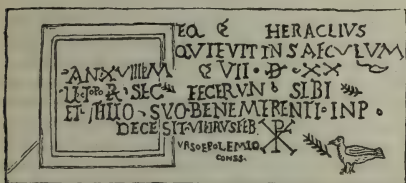 EQ HERACLIVS
QVIEVIT IN SAECVLVM
AN XVIIII M VII D XX
SEC FECERVN SIBI
ET FILIO SVO BENEMERENTI IN P
DECESIT
VRSO ET POLEMIO
CONSS.